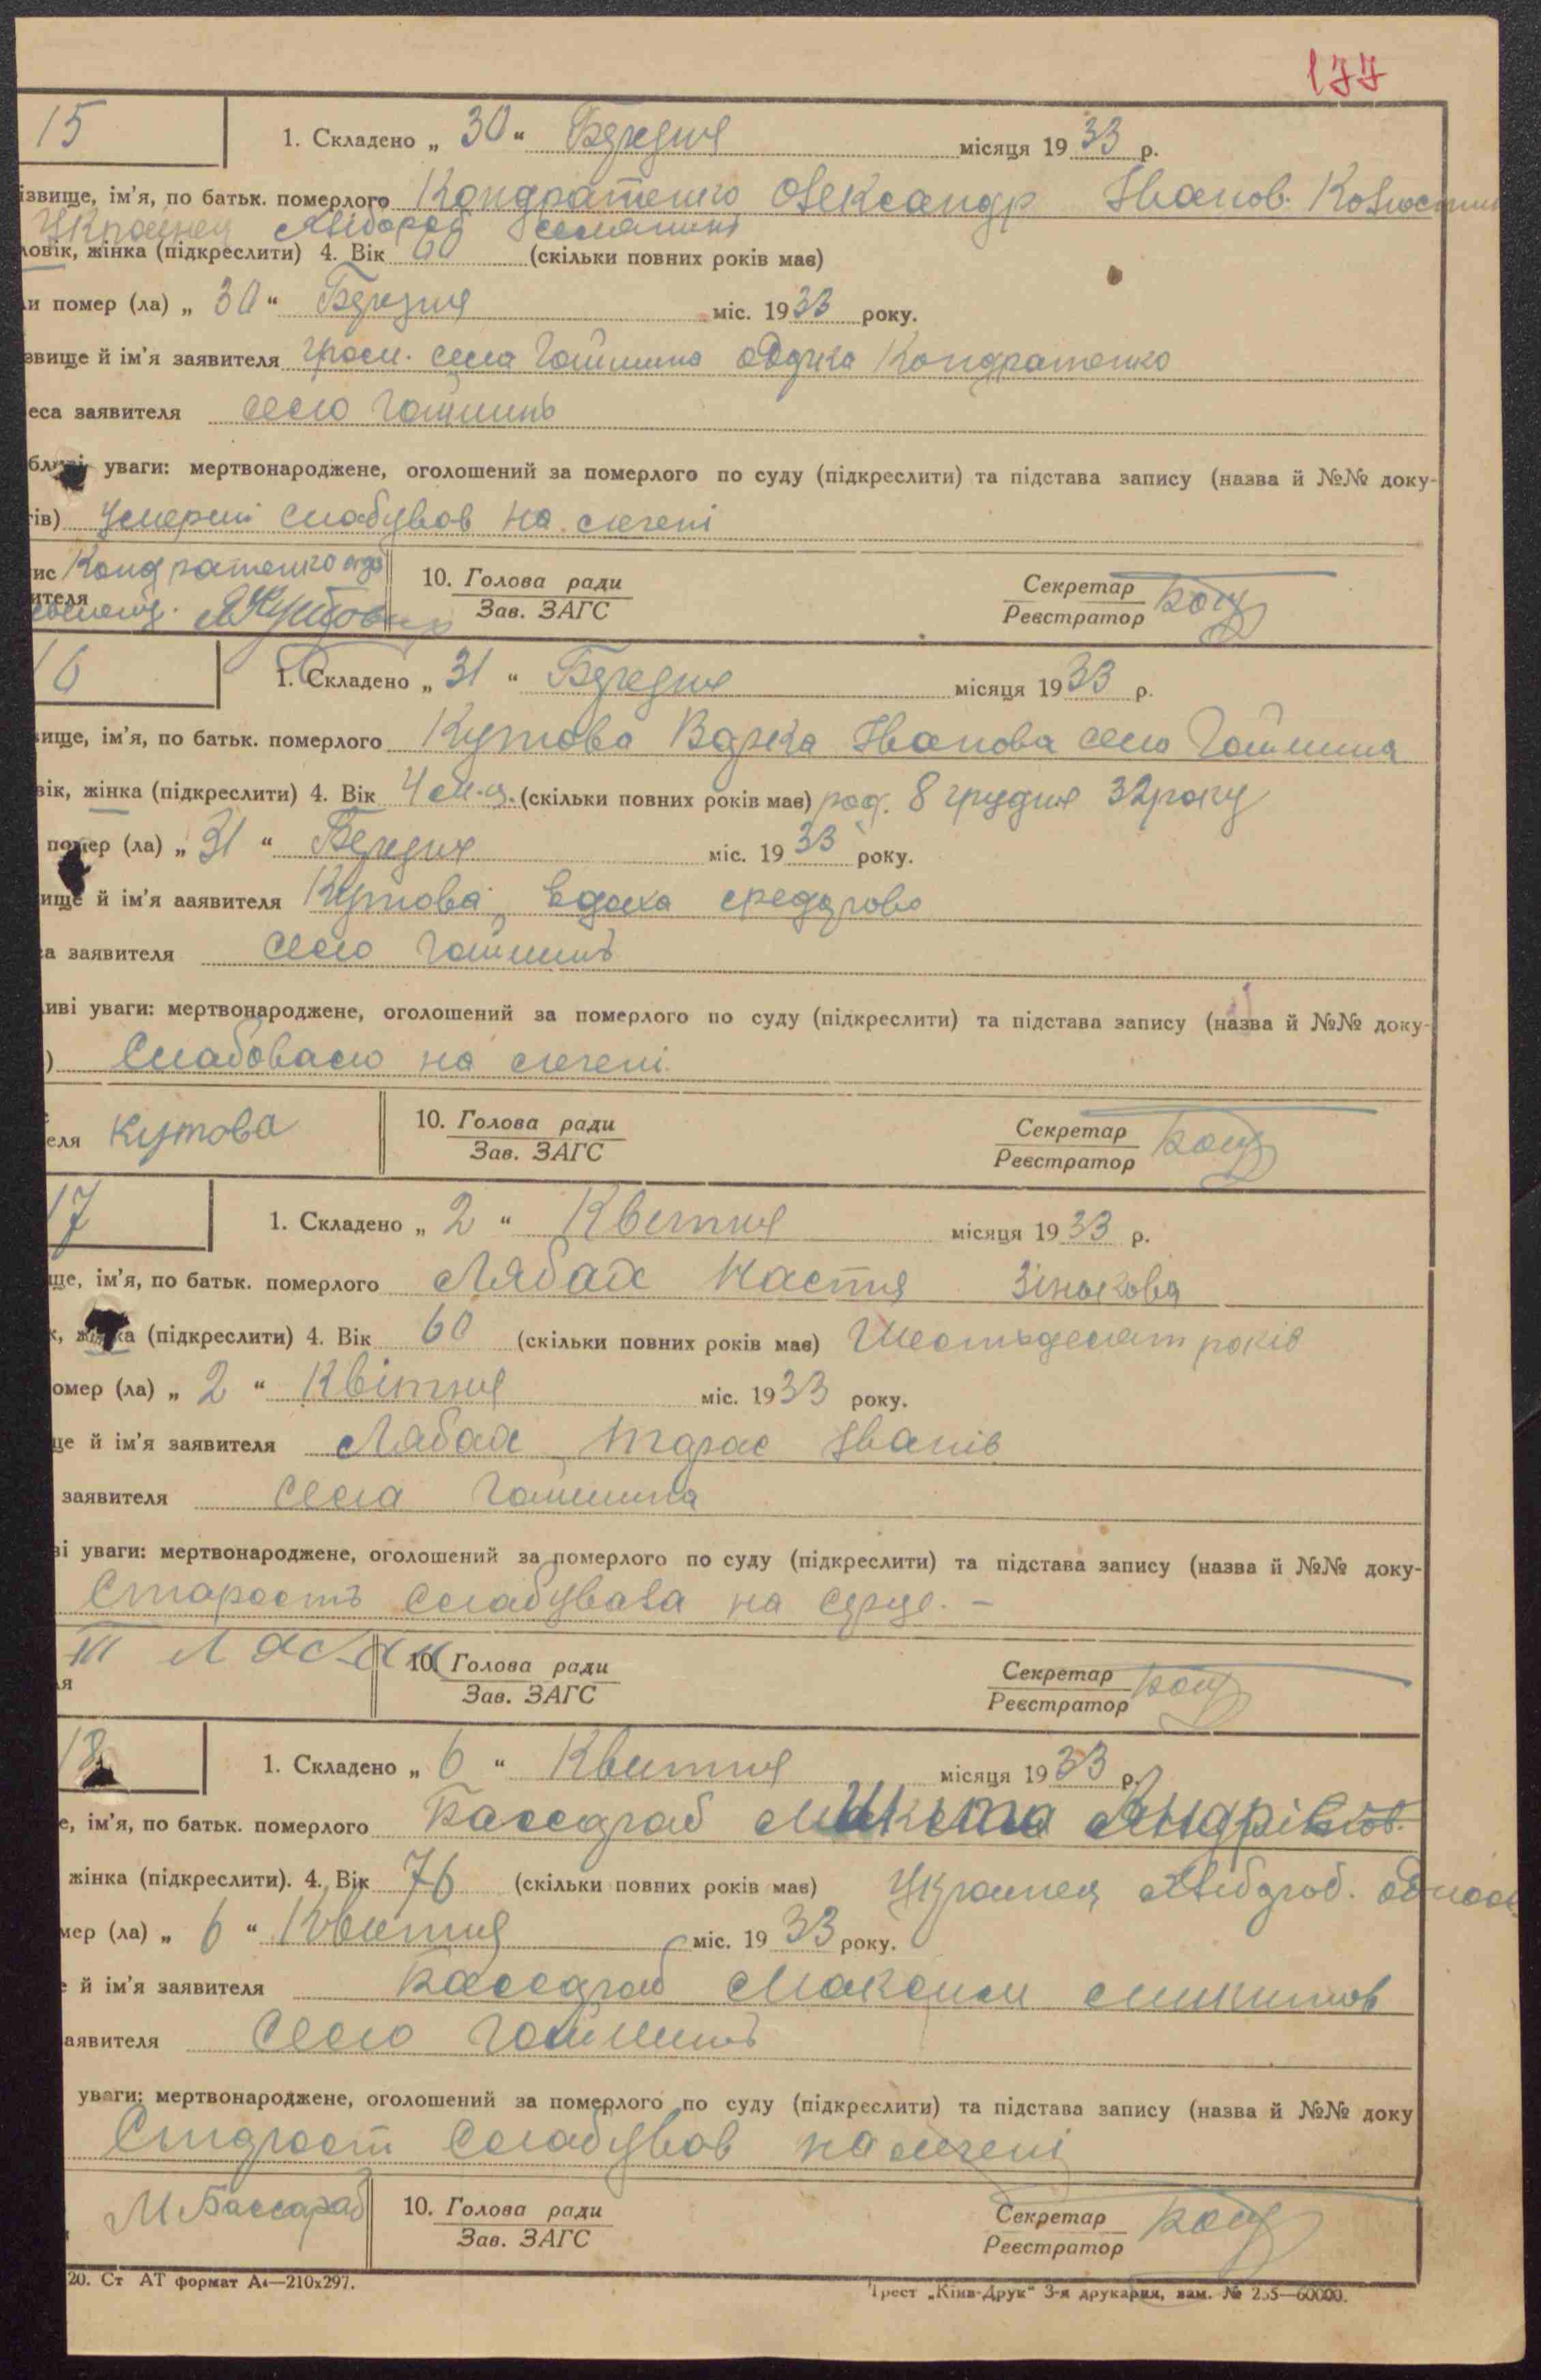 177
15 1. Складено „ 30 “ Березня місяця 1933 р.
ізвище, ім'я, по батьк. померлого Кондратенко Олександр Іванов. Колгоспник
Українец Хлібороб селянин
ловік, жінка (підкреслити) 4. Вік 60 (скільки повних років має)
ли помер (ла) „ 30 “ Березня міс. 1933 року.
звище й ім'я заявителя гром. села Гайшина Кондратенко
еса заявителя село Гайшинъ
бливі уваги: мертвонароджене, оголошений за померлого по суду (підкреслити) та підстава запису (назва й №№ доку-
тів) Умерший слабував на легені
ис Кондратенко 10. Голова ради Секретар
ителя Зав. ЗАГС Реєстратор
16 1. Складено „ 31 “ Березня місяця 1933 р.
вище, ім'я, по батьк. померлого Кутова Варка Іванова село Гайшина
вік, жінка (підкреслити) 4. Вік 4 м-ц. (скільки повних років має) род. 8 грудня 32 року
помер (ла) „ 31 “ Березня міс. 1933 року.
вище й ім'я заявителя Кутова Вдоха Федорова
са заявителя село Гайшинъ
ливі уваги: мертвонароджене, оголошений за померлого по суду (підкреслити) та підстава запису (назва й №№ доку-
) Слабовало на легені.
еля Кутова 10. Голова ради Секретар
Зав. ЗАГС Реєстратор
17 1. Складено „ 2 “ Квитня місяця 1933 р.
ще, ім'я, по батьк. померлого Лябах Настя Зінькова
к, жінка (підкреслити) 4. Вік 60 (скільки повних років має) Шестьдесят років
омер (ла) „ 2 “ Квітня міс. 1933 року.
ще й ім'я заявителя Лябах Тарас Іванів
заявителя села Гайшина
ві уваги: мертвонароджене, оголошений за померлого по суду (підкреслити) та підстава запису (назва й №№ доку-
Старость слабувала на серце. –
я 10. Голова ради Секретар
Зав. ЗАГС Реєстратор
18 1. Складено „ 6 “ Квитня місяця 1933 р.
е, ім'я, по батьк. померлого Бассараб Микита Андріїв
жінка (підкреслити). 4. Вік 76 (скільки повних років має) Украинец Хлібороб. одноос
мер (ла) „ 6 “ Квитня міс. 1933 року.
е й ім'я заявителя Бассараб Максим Микитов
аявителя село Гайшинъ
уваги: мертвонароджене, оголошений за померлого по суду (підкреслити) та підстава запису (назва й №№ доку
Старост слабував на легені
М Бассараб 10. Голова ради Секретар
Зав. ЗАГС Реєстратор
20. Ст АТ формат А4—210х297. Трест „Київ-Друк“ 3-я друкарня, зам. № 255—60000.